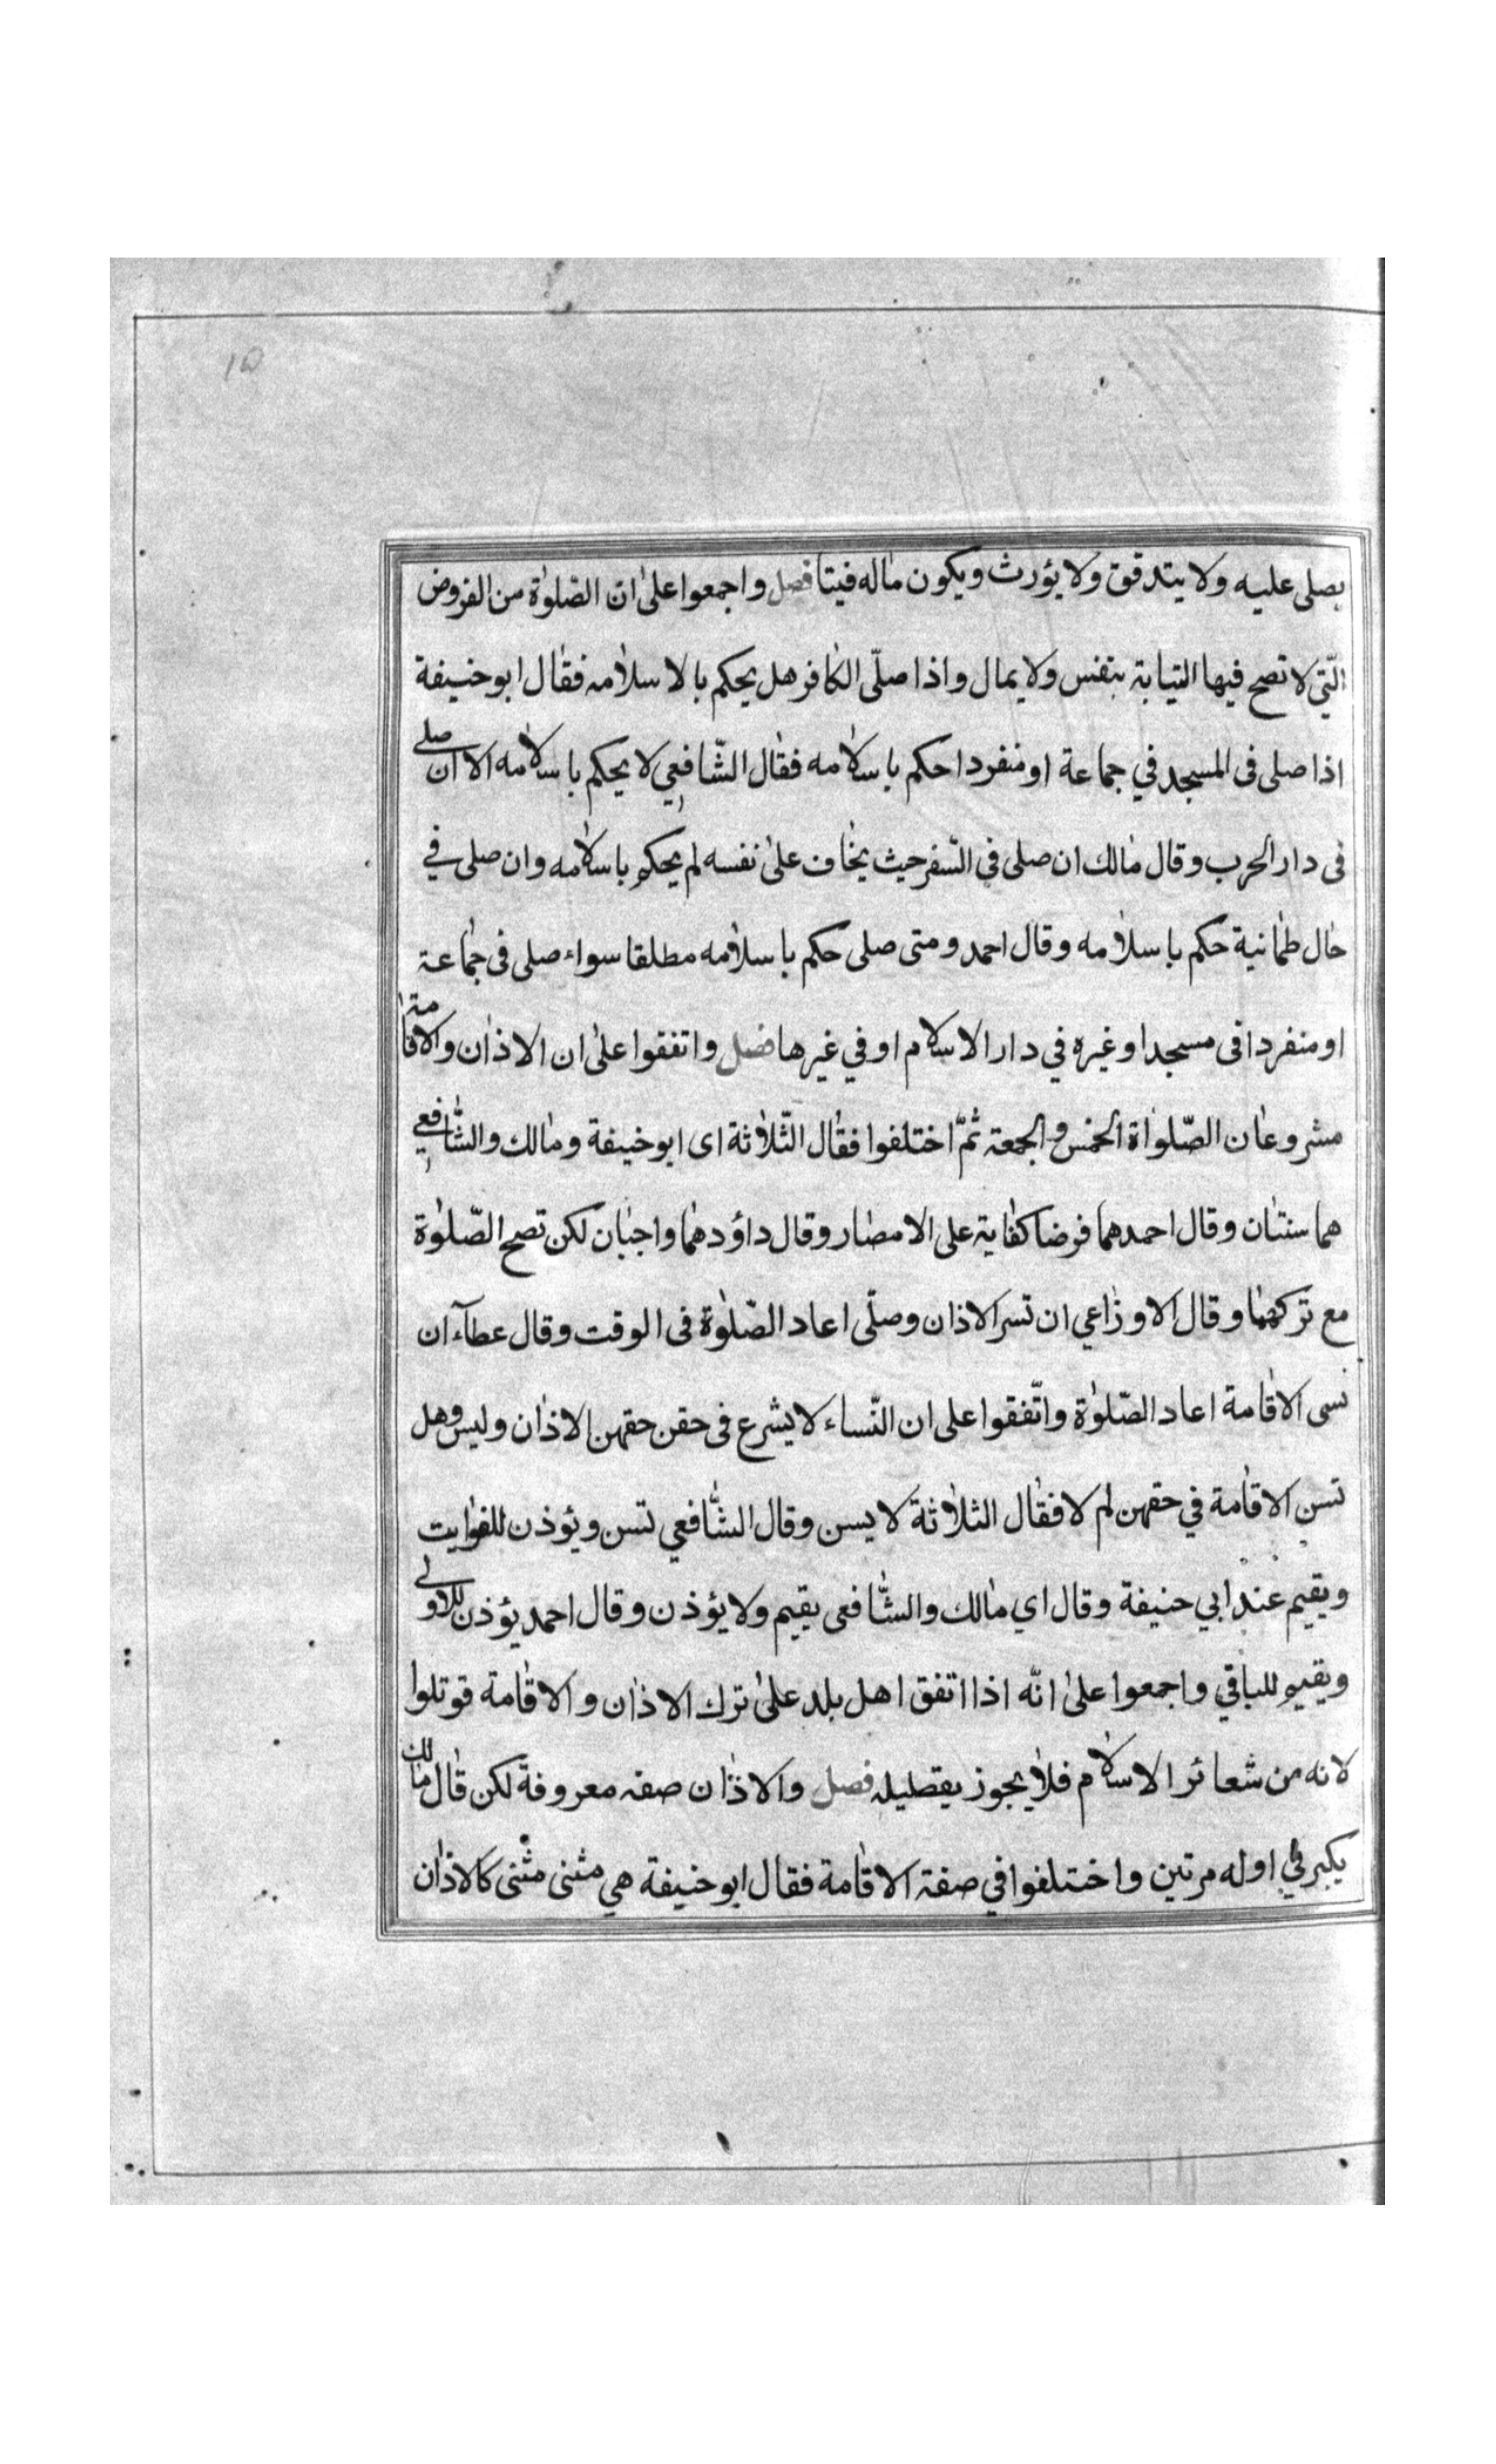 ۱۵
يصلى عليه ولا يتدقق ولا يؤرث ويكون ماله فيتا فصل واجمعوا على ان الصّلوٰة من الفروض
الّتي لا تصح فيها النيابة بنفس ولا بمال واذا صلّى الكافر هل يحكم بالاسلامه فقال ابو حنيفة
اذا صلى فى المسجد في جماعة او منفردا حكم باسلامه فقال الشّافعي لا يحكم باسلامه الا ان صلى
فى دار الحرب وقال مالك ان صلى في السّفر حيث يخاف على نفسه لم يحكم باسلامه وان صلى في
حال طمانية حكم باسلامه وقال احمد ومتى صلى حكم باسلامه مطلقا سواء صلى فى جماعة
او منفردا فى مسجد او غيره في دار الاسلام او في غيرها فصل واتفقوا على ان الاذان والاقامة
مشروعان الصّلواة الخمس والجمعة ثمّ اختلفوا فقال الثّلاثة اى ابو حنيفة ومالك والشّافعي
هما سنتان وقال احمد هما فرضا كفاية على الامصار وقال داؤد هما واجبان لكن تصح الصّلوٰة
مع تركهما وقال الاوزاعي ان تسر الاذان وصلّى اعاد الصّلوٰة فى الوقت وقال عطآء ان
نسى الاقامة اعاد الصّلوٰة واتّفقوا على ان النّساء لا يشرع فى حقن حقهن الاذان وليس وهل
تسن الاقامة في حقهن لم لا فقال الثلاثة لا يسن وقال الشّافعي تسن ويؤذن للفوايت
ويقيم عند ابي حنيفة وقال اي مالك والشّافعى يقيم ولا يؤذن وقال احمد يؤذن للاولى
ويقيم للباقي واجمعوا على انّه اذا اتفق اهل بلد على ترك الاذان والاقامة قوتلوا
لانه من شعائر الاسلام فلا يجوز يقطيله فصل والاذان صفه معروفة لكن قال مالك
يكبر في اوله مرتين واختلفوا في صفة الاقامة فقال ابو حنيفة هي مثنى مثنى كالاذان